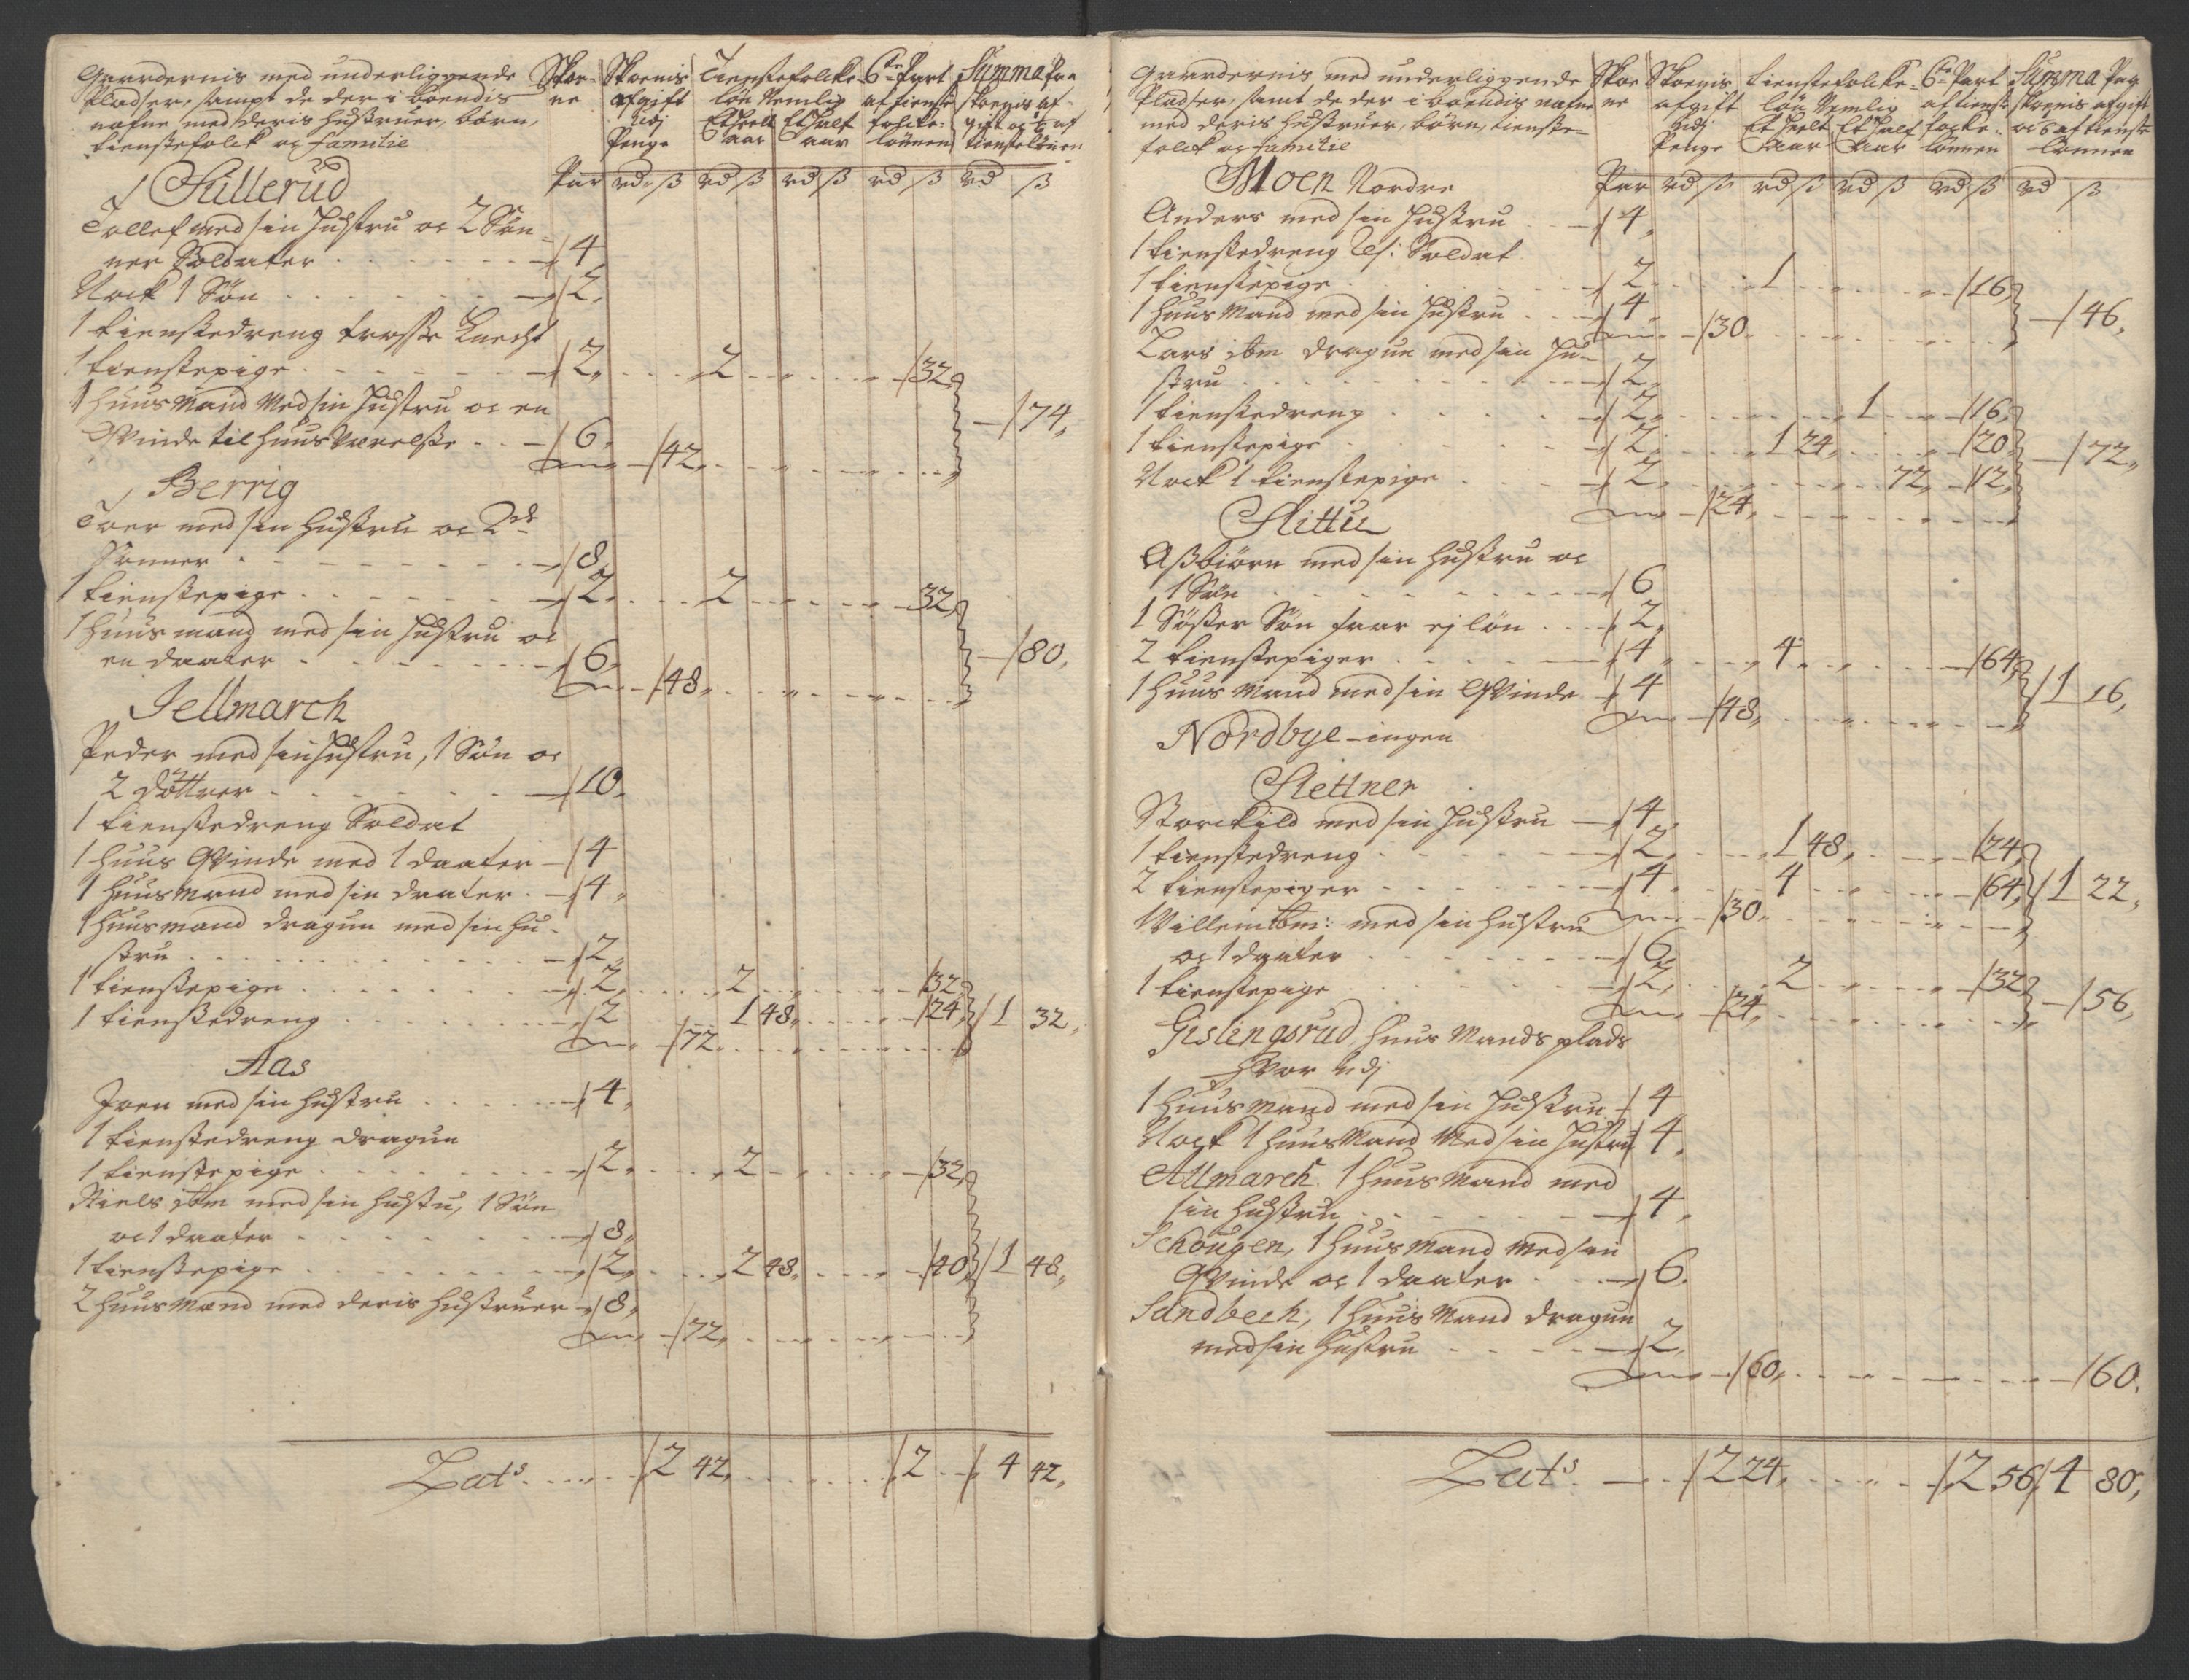 Gaardernis med underliggende
Pladser, sampt de der i boendis
nafne med deris hustruer, börn,
tienstefolck oc familie
Skoe-
ne
Skoenis
afgift
udj
Penge
Tienstefolcke-
lön Nemlig
Et heelt
Aar
Et half
aar
6te Part
af tienste
folcke-
lönnen
Summa paa
skoenis af-
gift oc 1/6 af
tienstelönnen
Par rd ß rd ß rd ß rd ß rd ß
Sullerud
Tollef med sin hustru oc 2 Sön-
ner Soldater - 4
Nock 1 Sön - 2
1 tienstedreng trosse knecht
1 tienstepige - 2 2 32
1 huusmand med sin hustru oc en
qvinde til huusværelse - 6 74
42
Berrig
Toer med sin hustru oc 2de
Sönner - 8
1 tienstepige - 2 2 32
1 huusmand med sin hustru oc
en daater - 6 80
48
Jellmarch
Peder med sin hustru, 1 Sön oc
2 döttrer - 10
1 tienstedreng Soldat
1 huus qvinde med 1 daater - 4
1 huusmand med sin daater - 4
1 huusmand dragun med sin hu-
stru - 2
1 tienstepige - 2 2 32
1 tienstedreng - 2 1 48 24 1 32
72
Aas
Joen med sin hustru - 4
1 tienstedreng dragun
1 tienstepige - 2 2 32
Niels ibm med sin hustu, 1 Sön
oc 1 daater - 8
1 tienstepige - 2 2 48 40 1 48
2 huusmænd med deris hustruer - 8
72
Lats 2 42 2 4 42
Gaardernis med underliggende
Pladser, samt de der i boendis nafne
med deris hustruer, börn, tienste-
folck oc familie
Skoe
ne
Skoenis
afgift
udj
Penge
tienstefolcke-
lön Nemlig
Et heelt
Aar
Et half
Aar
6te Part
af tienste
folcke-
lönnen
Summa Paa
skoenis afgift
oc 6 af tienste
lönnen
Par rd ß rd ß rd ß rd ß rd ß
Moen Nordre
Anders med sin hustru - 4
1 tienstedreng Soldat
1 tienstepige - 2 1 16
1 huusmand med sin hustru - 4 46
30
Lars ibm dragun med sin hu-
stru - 2
1 tienstedreng - 2 1 16
1 tienstepige - 2 1 24 20 72
Nock 1 tienstepige - 2 72 12
24
Slittu
Asbiörn med sin hustru oc
1 Sön - 6
1 Söster Sön faar ej lön - 2
2 tienstepiger - 4 4 64
1 huusmand med sin qvinde - 4 1 16
48
Nordbye - ingen
Slettner
Storckild med sin hustru - 4
1 tienstedreng - 2 1 48 24
2 tienstepiger - 4 4 64 1 22
30
Villem ibm: med sin hustru
oc 1 daater - 6
1 tienstepige - 2 2 32 56
24
Gislengsrud, huus Mands plads
hvor udj
1 huusmand med sin hustru - 4
Nock 1 huusmand med sin hustru 4
Allmarch. 1 huusmand med
sin hustru - 4
Schougen, 1 huusmand med sin
qvinde oc 1 daater - 6
Sandbech, 1 huusmand dragun
med sin hustru - 2
60 60
Lats 2 24 2 56 4 80